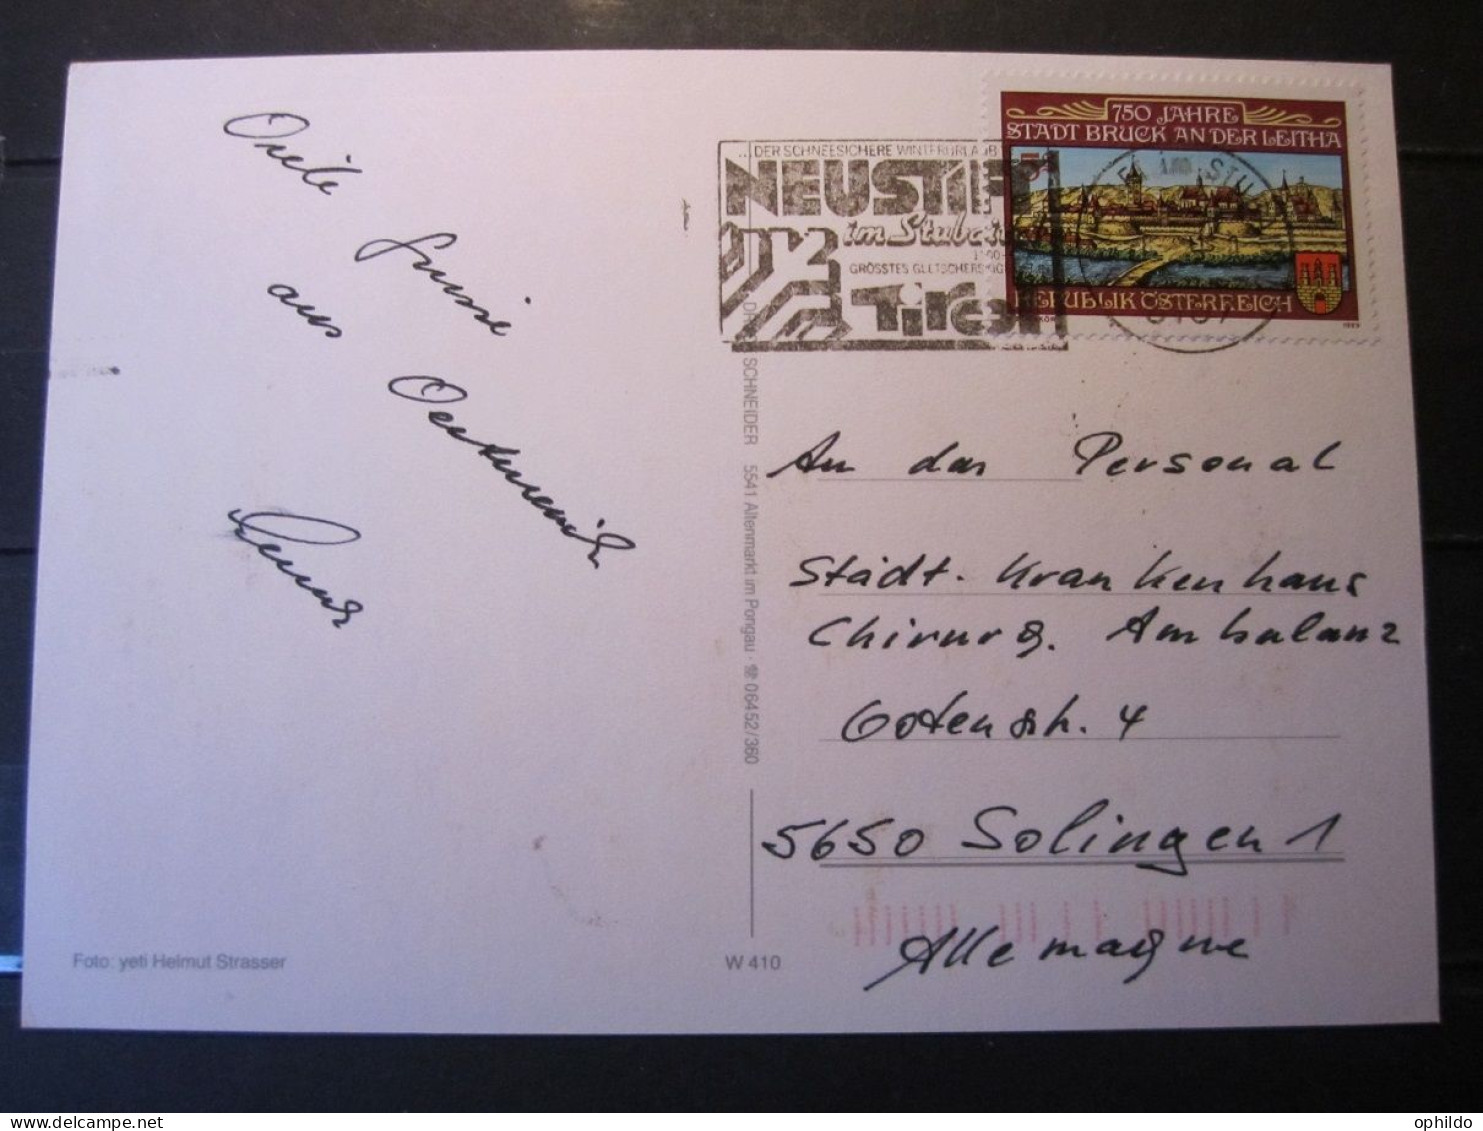 Viele
Grüsse
aus
Oesterreich
...DER SCHNEESICHERE WINTERURLAUB
NEUSTIFT
im Stubai
GRÖSSTES GLETSCHERSKIG
Tirol
750 JAHRE
STADT BRUCK AN DER LEITHA
5
REPUBLIK ÖSTERREICH
1989
SCHNEIDER 5541 Altenmarkt im Pongau · ☎ 06452/360
An das Personal
Städt. Krankenhaus
Chirurg. Ambulanz
Gotenstr. 4
5650 Solingen 1
Allemagne
Foto: yeti Helmut Strasser
W 410
ophildo